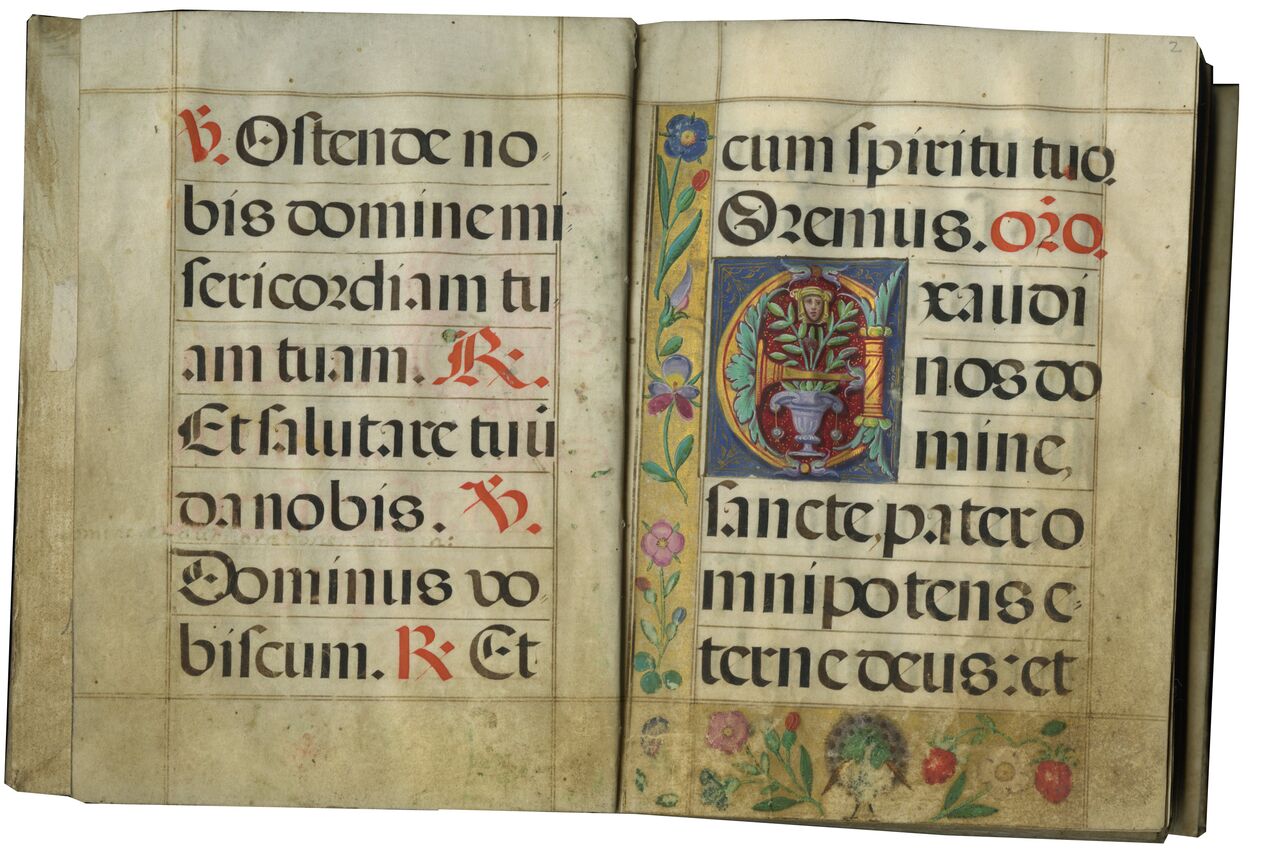 V. Ostende no
bis domine mi
sericordiam tu
am tuam. R.
Et salutare tuū
da nobis. V.
Dominus vo
biscum. R. Et
2
cum spiritu tuo.
Oremus. oro.
Exaudi
nos do
mine,
sancte, pater o
mnipotens e
terne deus: et